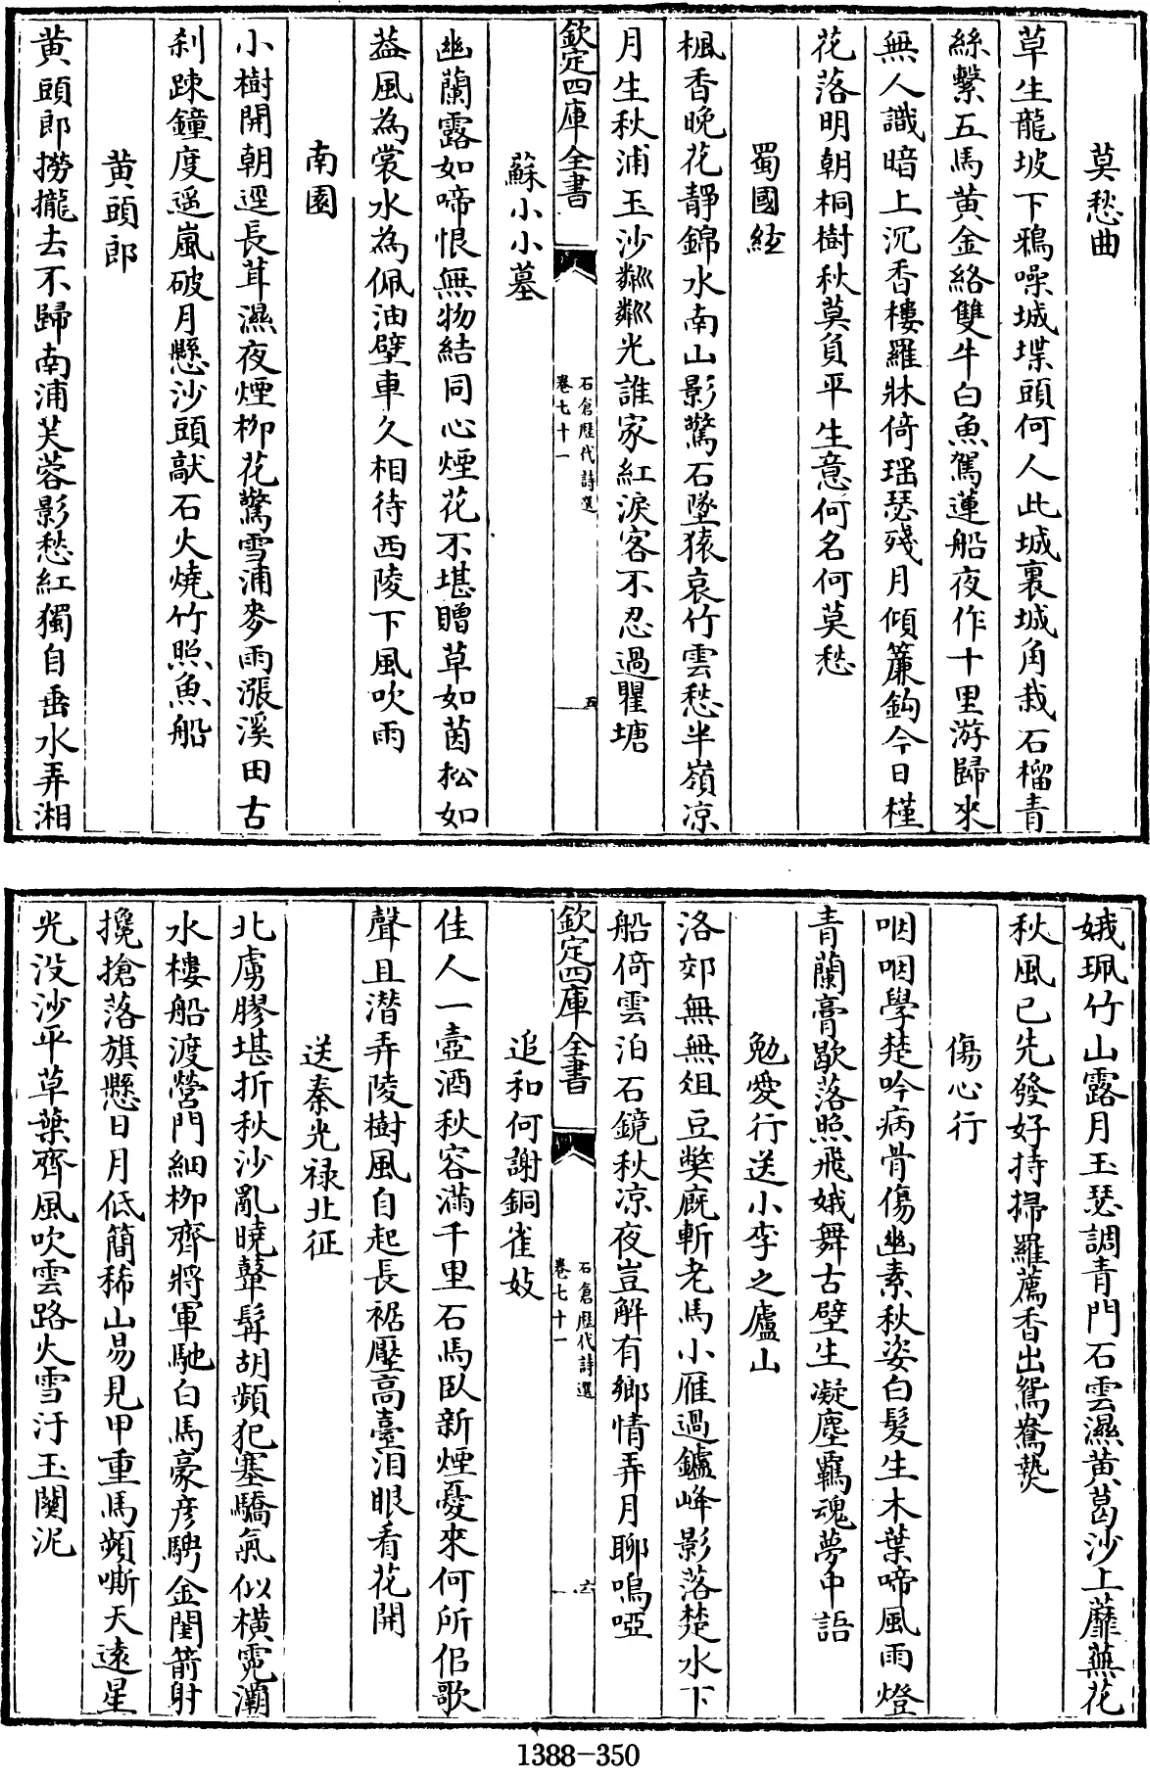 莫愁曲
草生龍坡下鴉噪城堞頭何人此城裏城角栽石榴青
絲繫五馬黃金絡雙牛白魚駕蓮船夜作十里游歸來
無人識暗上沉香樓羅牀倚瑶瑟殘月傾簾鈎今日槿
花落明朝桐樹秋莫負平生意何名何莫愁
蜀國絃
楓香晚花靜錦水南山影驚石墜猿哀竹雲愁半嶺凉
月生秋浦玉沙粼粼光誰家紅淚客不忍過瞿塘
欽定四庫全書
石倉歷代詩選
卷七十一
五
蘇小小墓
幽蘭露如啼恨無物結同心煙花不堪贈草如茵松如
葢風為裳水為佩油壁車久相待西陵下風吹雨
南園
小樹開朝逕長茸濕夜煙柳花驚雪浦麥雨漲溪田古
刹踈鐘度遥嵐破月懸沙頭敲石火燒竹照魚船
黄頭郎
黄頭郎撈攏去不歸南浦芙蓉影愁紅獨自垂水弄湘
娥珮竹山露月玉瑟調青門石雲濕黄葛沙上蘼蕪花
秋風已先發好持掃羅薦香出鴛鴦爇
傷心行
咽咽學楚吟病骨傷幽素秋姿白髮生木葉啼風雨燈
青蘭膏歇落照飛娥舞古壁生凝塵羈魂夢中語
勉愛行送小李之廬山
洛郊無無俎豆獘廐斬老馬小雁過鑪峰影落楚水下
船倚雲泊石鏡秋凉夜豈解有鄉情弄月聊嗚啞
欽定四庫全書
石倉歷代詩選
卷七十一
六
追和何謝銅雀妓
佳人一壺酒秋容滿千里石馬臥新煙憂來何所佀歌
聲且潛弄陵樹風自起長裾壓高臺泪眼看花開
送秦光禄北征
北虜膠堪折秋沙亂曉鼙髯胡頻犯塞驕氣似橫霓灞
水樓船渡營門細柳齊將軍馳白馬豪彦騁金閨箭射
攙搶落旗懸日月低簡稀山易見甲重馬頻嘶天遠星
光沒沙平草葉齊風吹雲路火雪汙玉關泥
1388-350